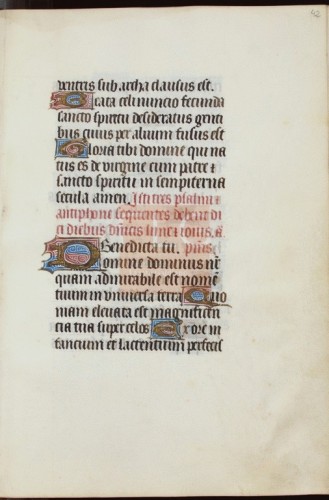 42
ventris sub archa clausus est.
Beata celi nuncio fecunda
sancto spiritu desideratus genti
bus cuius per aluum fusus est
Gloria tibi domine qui na
tus es de virgine cum patre et
sancto spiritu in sempiterna
secula amen. Isti tres psalmi et
antiphone sequentes debent di
ci diebus dnicis lune et iouis. a.
Benedicta tu. psus.
Domine dominus nr
quam admirabile est nomen
tuum in vniuersa terra Quo
niam eleuata est magnificen
cia tua super celos Ex ore in
fancium et lactentium perfecis